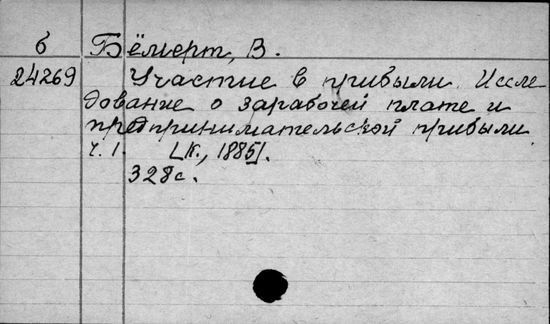 б Бёмерт, В.
24269 Участие в прибыли. Иссле
дование о заработной плате и
предпринимательской прибыли.
ч. 1. [К., 1885].
328 с.